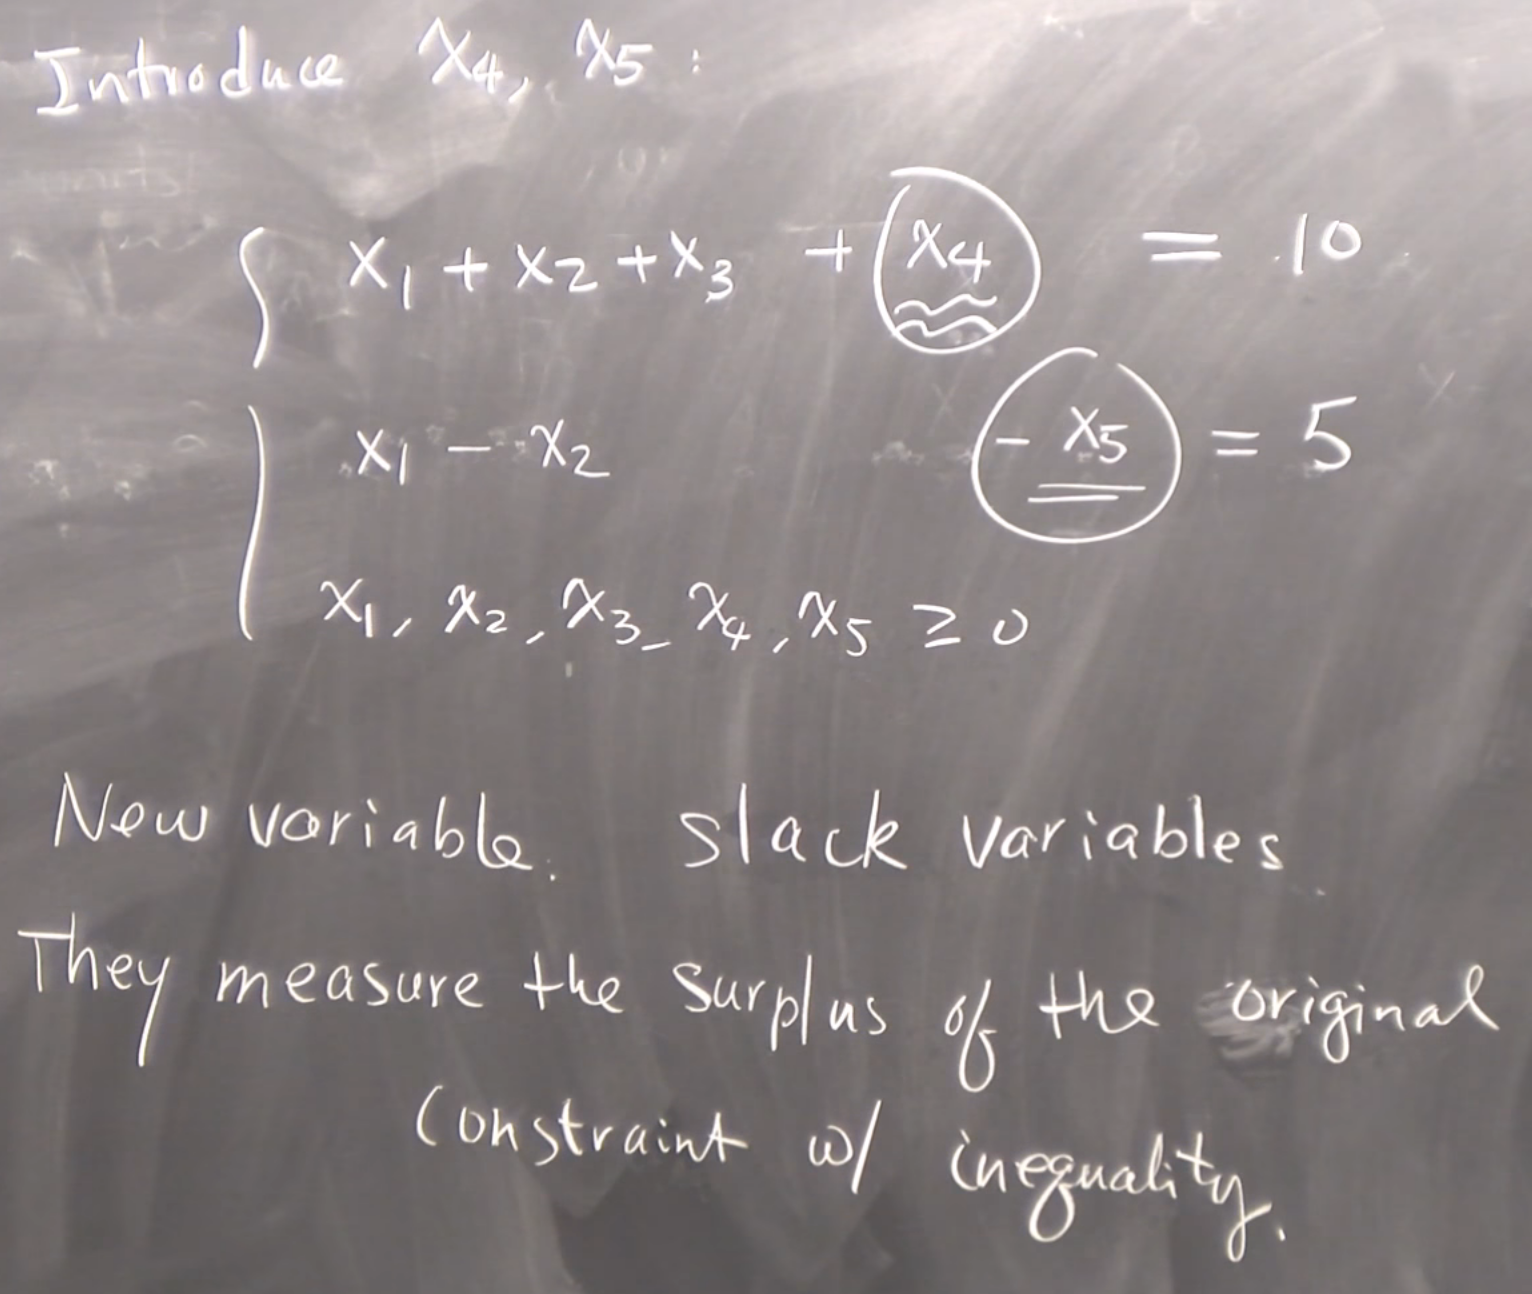 Introduce x₄, x₅ :
x₁ + x₂ + x₃ + x₄ = 10
x₁ - x₂ - x₅ = 5
x₁, x₂, x₃, x₄, x₅ ≥ 0
New variable. slack variables
They measure the surplus of the original
constraint w/ inequality.